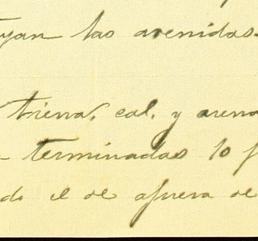 yan las avenidas.
trierra, cal, y arena
terminadas lo
do el de afuera de